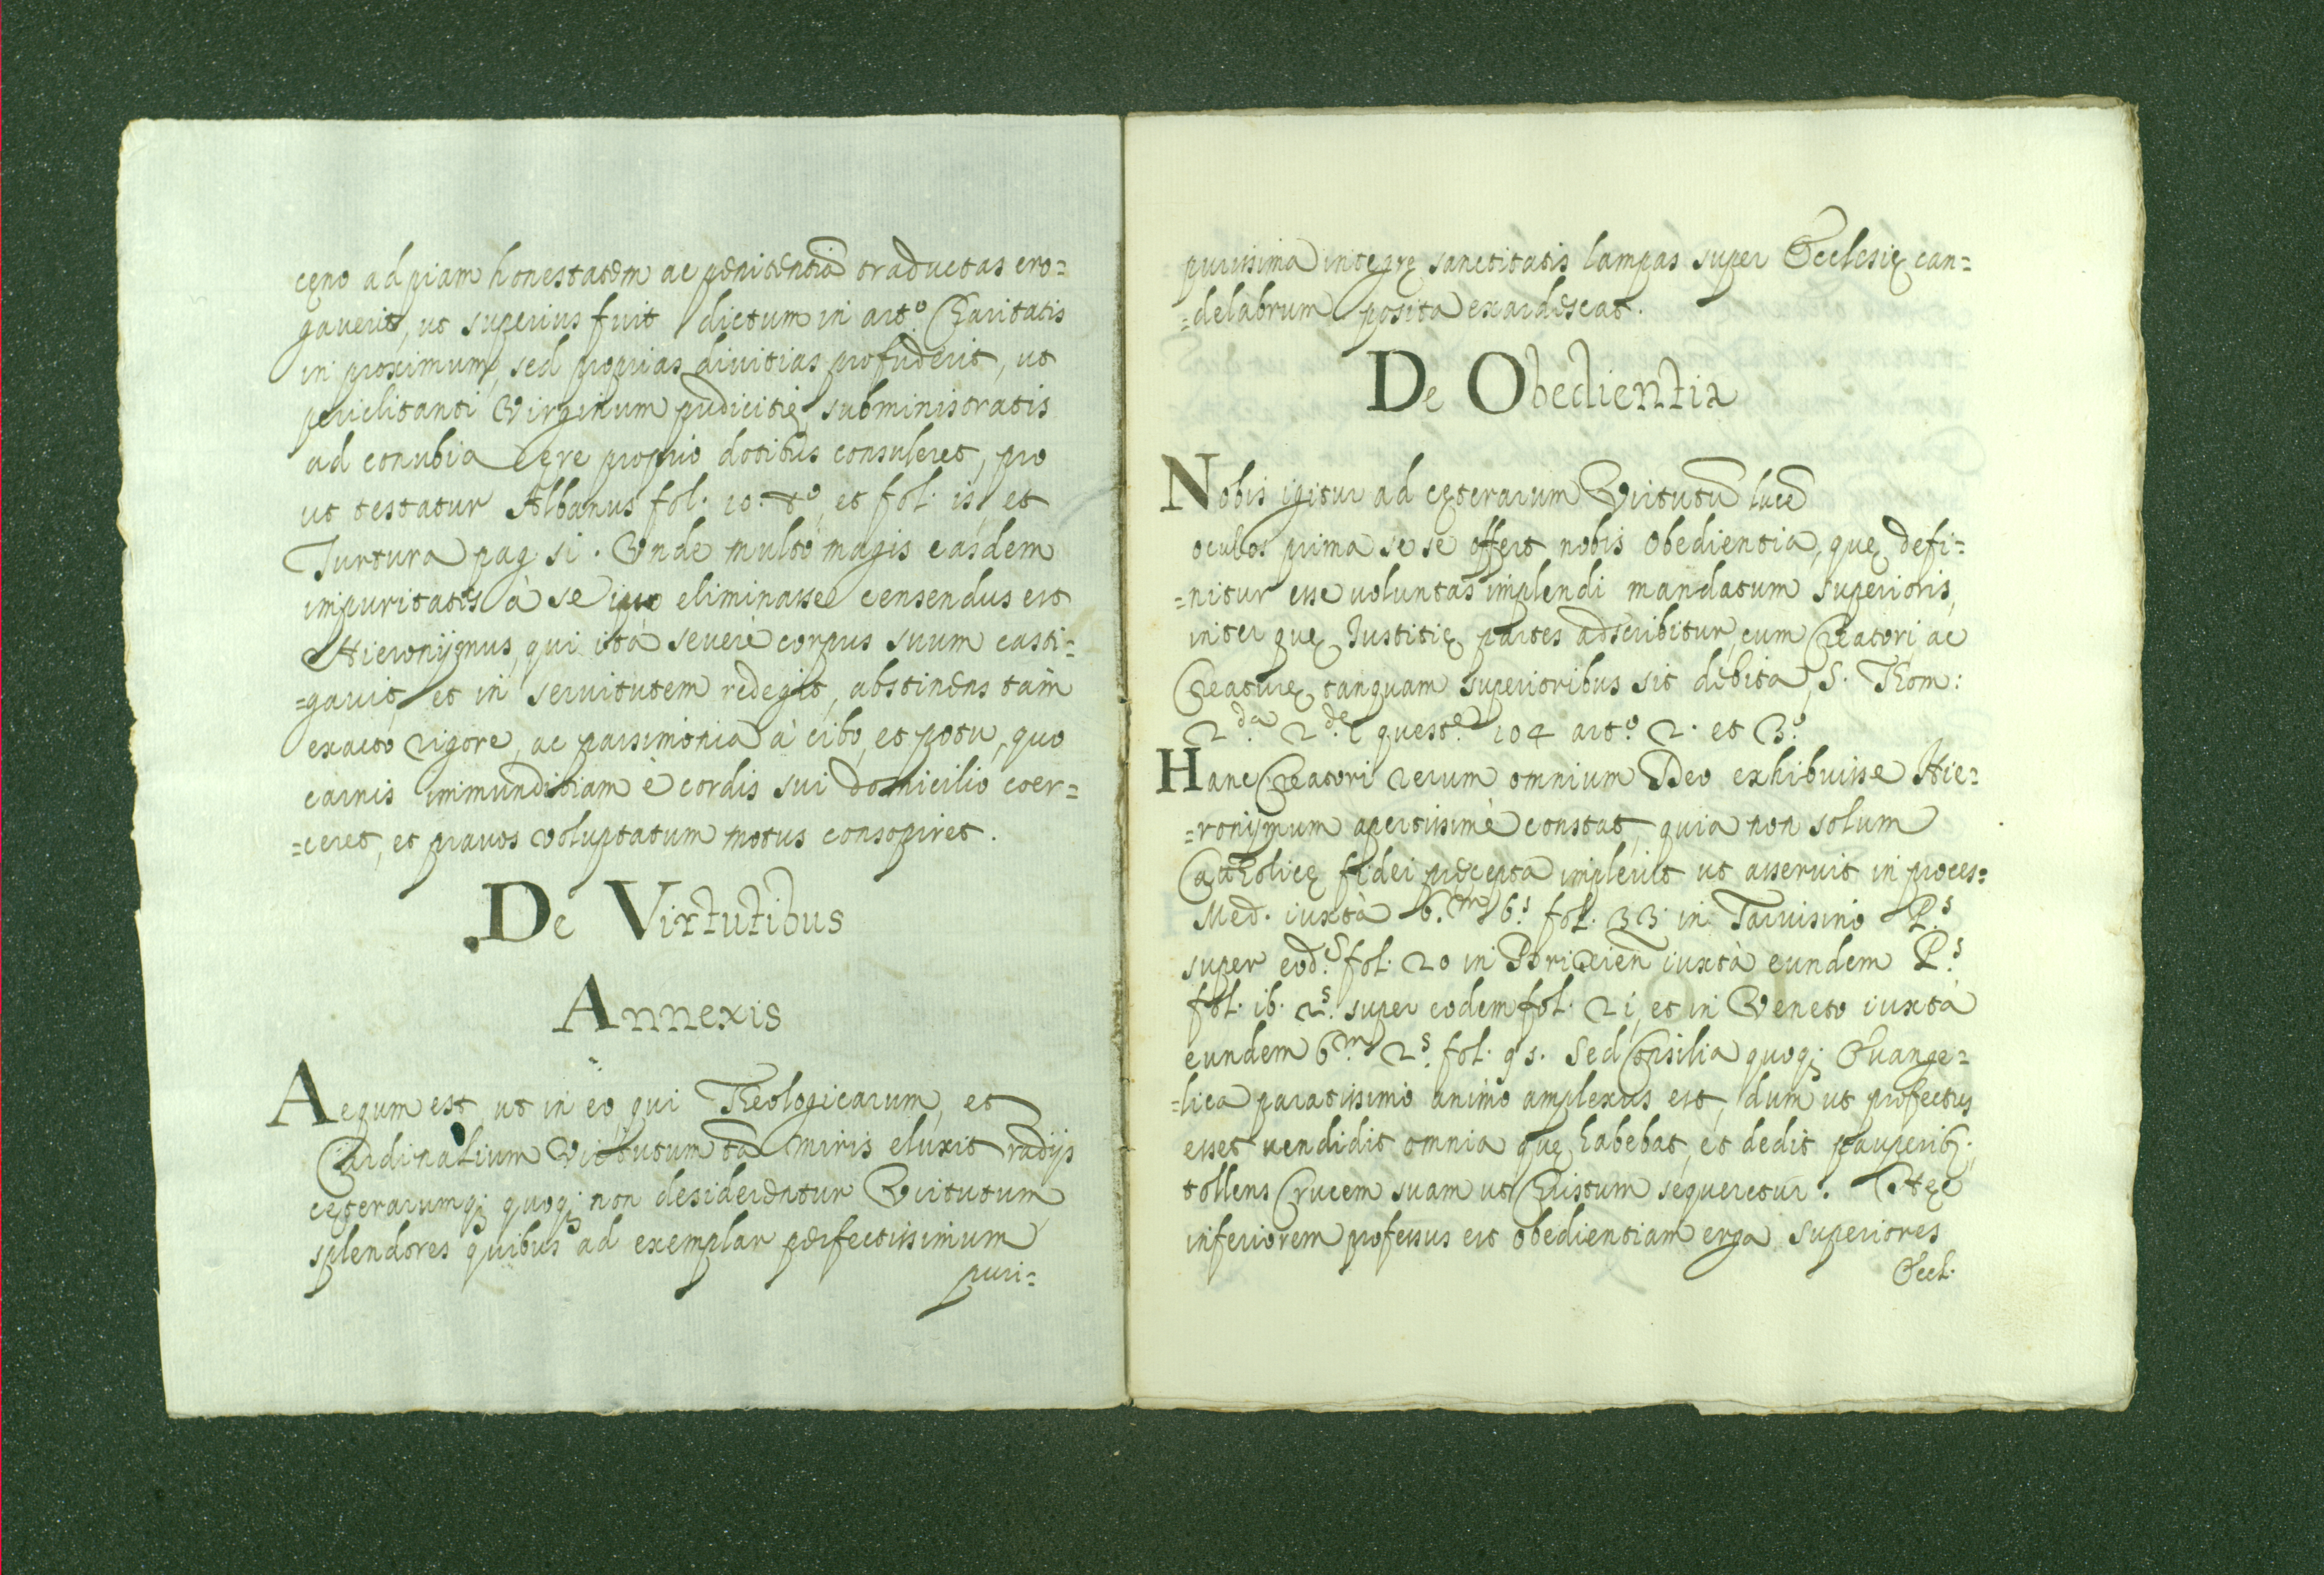 cęno ad piam honestatem ac pęnitentiã traductas ero=
gaverit, ut superius fuit dictum in art.º Charitatis
in proximum, sed proprias divitias profuderit, ut
periclitanti Virginum pudicitię, subministratis
ad conubia ęre proprio dotibus consuleret, pro
ut testatur Albanus fol. 10. tº, et fol. 15, et
Turtura pag 51. Unde multò magis easdem
impuritates à se ipso eliminasse censendus est
Hieronijmus, qui ità severè corpus suum casti=
=gavit, et in servitutem redegit, abstinens tam
exacto rigore, ac parsimonia à cibo, et potu, quo
carnis immunditiam è cordis sui domicilio coer=
=ceret, et pravos voluptatum motus consopiret.
De Virtutibus
Annexis
Aequm est, ut in eo, qui Theologicarum, et
Cardinalium Virtutum tã miris eluxit radijs
cęterarumq; quoq; non desiderentur Virtutum
splendores quibus ad exemplar perfectissimum
puri=
purissima integrę sanctitatis lampas super Ecclesię can=
=delabrum posita exardescat.
De Obedientia
Nobis igitur ad cęterarum Virtutũ lucẽ
oculos prima se se offert nobis Obedientia, quę defi=
=nitur esse voluntas implendi mandatum superioris,
inter quę Iustitię partes adscribitur, cum Creatori ac
Creaturę tanquam superioribus sit debita, S. Thom:
2.da 2.de quest.e 104 art.º 2. et 3.º
Hanc Creatori rerum omnium Deo exhibuisse Hie=
=ronijmum apertissimè constat, quia non solum
Catholicę fidei pręcepta implevit ut asseruit in proces=
Med. iuxtà 6.m 6.s fol. 33. in Tarvisino P.s
super eod.e fol. 20 in Brixien iuxtà eundem P.s
fol. 16. 2.s super eodem fol. 21, et in Veneto iuxtà
eundem 6.m 2.s fol. 95. Sed Consilia quoq; Evange=
=lica paratissimo animo amplexus est, dum ut profectus
esset vendidit omnia quę habebat, et dedit pauperib;,
tollens Crucem suam ut Christum sequeretur. Hęc
inferiorem professus est obedientiam erga superiores
Eccl.